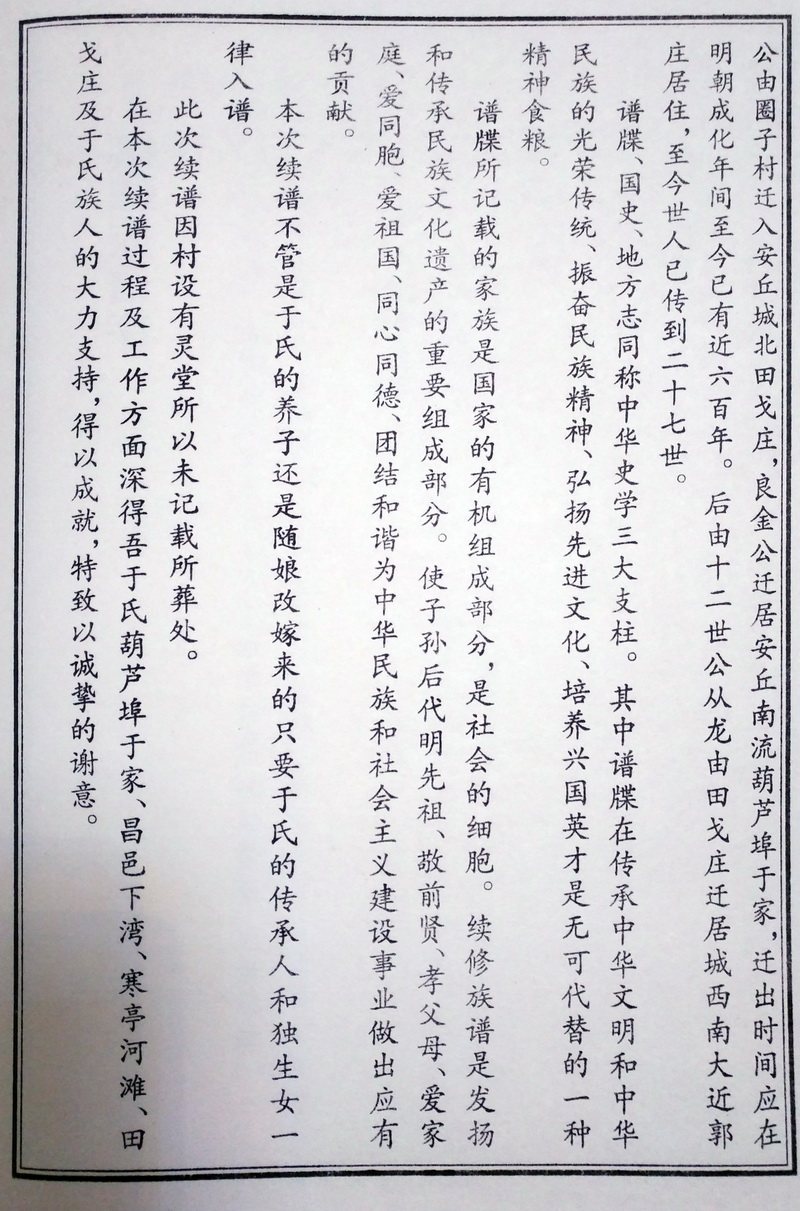 公由圈子村迁入安丘城北田戈庄，良金公迁居安丘南流葫芦埠于家，迁出时间应在
明朝成化年间至今已有近六百年。后由十二世公从龙由田戈庄迁居城西南大近郭
庄居住，至今世人已传到二十七世。
谱牒、国史、地方志同称中华史学三大支柱。其中谱牒在传承中华文明和中华
民族的光荣传统、振奋民族精神、弘扬先进文化、培养兴国英才是无可代替的一种
精神食粮。
谱牒所记载的家族是国家的有机组成部分，是社会的细胞。续修族谱是发扬
和传承民族文化遗产的重要组成部分。使子孙后代明先祖、敬前贤、孝父母、爱家
庭、爱同胞、爱祖国、同心同德、团结和谐为中华民族和社会主义建设事业做出应有
的贡献。
本次续谱不管是于氏的养子还是随娘改嫁来的只要于氏的传承人和独生女一
律入谱。
此次续谱因村设有灵堂所以未记载所葬处。
在本次续谱过程及工作方面深得吾于氏葫芦埠于家、昌邑下湾、寒亭河滩、田
戈庄及于氏族人的大力支持，得以成就，特致以诚挚的谢意。